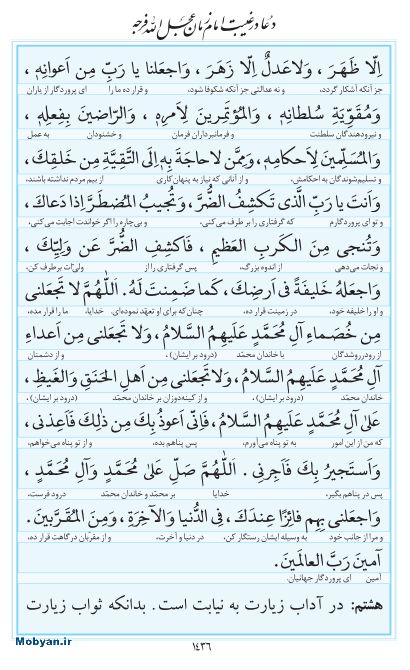 دعا در غیبت امام زمان عجل الله فرجه
اِلّا ظَهَرَ ، وَلاعَدلٌ اِلّا زَهَرَ ، وَاجعَلنا یا رَبِّ مِن اَعوانِهِ ،
جز آنکه آشکار گردد، و نه عدالتی جز آنکه شکوفا شود، و قرار ده ما را ای پروردگار از یاران
وَ مُقَوِّیَةِ سُلطانِهِ ، وَالمُؤتَمِرینَ لِاَمرِهِ ، وَالرّاضینَ بِفِعلِهِ ،
و نیرودهندگان سلطنت و فرمانبرداران فرمان و خشنودان به عمل
وَالمُسَلِّمینَ لِاَحکامِهِ ، وَمِمَّن لاحاجَةَ بِهِ اِلَی التَّقِیَّةِ مِن خَلقِكَ ،
و تسلیم‌شوندگان به احکامش، و از آنانی که نیاز به پنهان‌کاری از بیم مردم نداشته باشند،
وَ اَنتَ یا رَبِّ الَّذی تَکشِفُ الضُّرَّ ، وَتُجیبُ المُضطَرَّ اِذا دَعاكَ ،
و تو ای پروردگارم که گرفتاری را بر طرف می‌کنی، و بی‌چاره را اگر خواندت اجابت می‌کنی،
وَ تُنجی مِنَ الکَربِ العَظیمِ ، فَاکشِفِ الضُّرَّ عَن وَلِیِّكَ ،
و نجات می‌دهی از اندوه بزرگ، پس گرفتاری را از ولی‌ات برطرف کن،
وَ اجعَلهُ خَلیفَةً فی اَرضِكَ ، کَما ضَمِنتَ لَهُ . اَللّهُمَّ لا تَجعَلنی
و او را خلیفه خود، در زمینت قرار ده، چنان‌که برای او تعهّد نموده‌ای. خدایا، ما را قرار مده،
مِن خُصَماءِ آلِ مُحَمَّدٍ عَلَیهِمُ السَّلامُ ، وَلا تَجعَلنی مِن اَعداءِ
از رودرروشدگان با خاندان محمّد (درود بر ایشان) ، و از دشمنان
آلِ مُحَمَّدٍ عَلَیهِمُ السَّلامُ ، وَلا تَجعَلنی مِن اَهلِ الحَنَقِ وَالغَیظِ ،
خاندان محمّد (درود بر ایشان) ، و از کینه‌دوزان بر خاندان محمّد (درود بر ایشان) ،
عَلی آلِ مُحَمَّدٍ عَلَیهِمُ السَّلامُ ، فَاِنّی اَعوذُ بِكَ مِن ذلِكَ فَاَعِذنی ،
که من از این امور به تو پناه می‌آورم، پس پناهم بده، و از تو پناه می‌خواهم،
وَ اَستَجیرُ بِكَ فَاَجِرنی . اَللّهُمَّ صَلِّ عَلی مُحَمَّدٍ وَ آلِ مُحَمَّدٍ ،
پس در پناهم بگیر، خدایا بر محمّد و خاندان محمّد درود فرست،
وَ اجعَلنی بِهِم فائِزًا عِندَكَ ، فِی الدُّنیا وَالآخِرَةِ ، وَ مِنَ المُقَرَّبینَ .
و مرا از جانب خود به وسیله ایشان رستگار کن، در دنیا و آخرت، و از مقرّبان درگاهت قرار ده،
آمینَ رَبَّ العالَمینَ .
آمین ای پروردگار جهانیان.
هشتم: در آداب زیارت به نیابت است. بدانکه ثواب زیارت
۱۴۳۶
Mobyan.ir